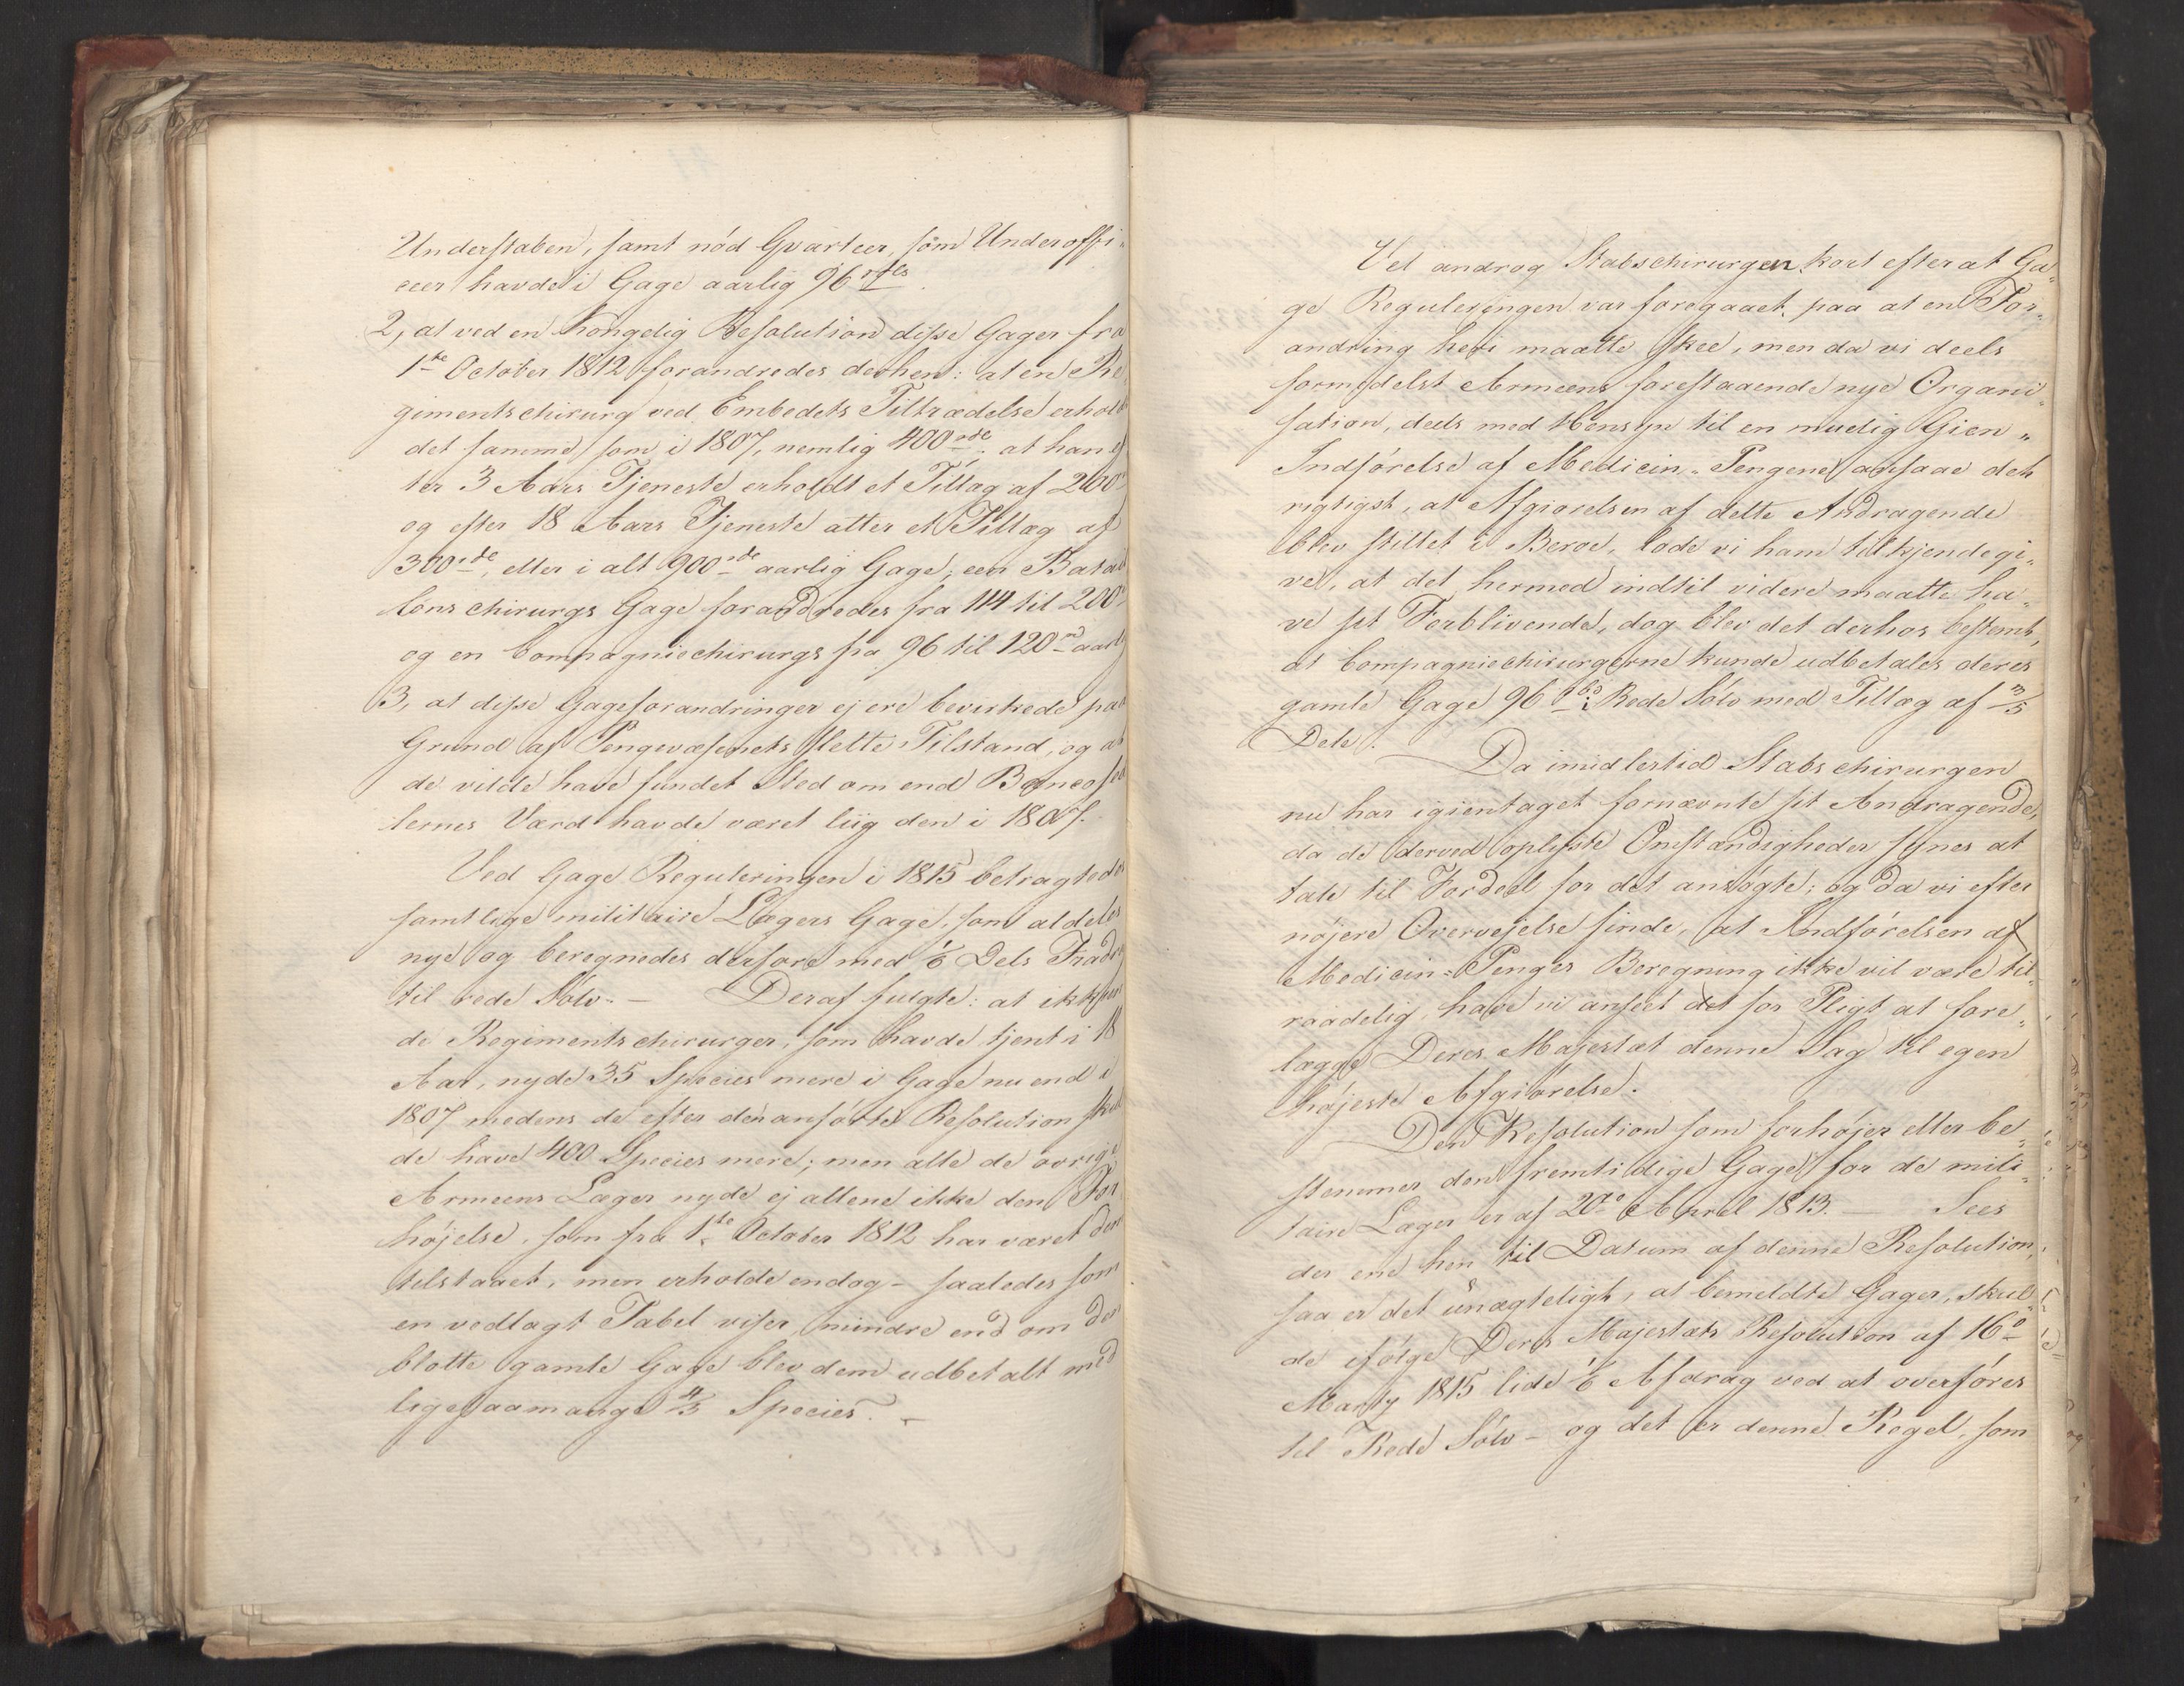 Understaben, samt nød Gvarteer, som Underoffi„
ceer havde i Gage aarlig 96 rdlr.
2, at ved en Kongelig Resolution disse Gager fra
1ste October 1812 forandredes derhen: at en Re„
gimentschirurg ved Embedets Tiltrædelse erholdt
det samme som i 1807, nemlig 400 rd; at han ef
ter 3 Aars Tjeneste erholdt et Tillæg af 200
og efter 18 Aars Tjeneste atter et Tillæg af
300 rd, eller i alt 900 rd aarlig Gage; een Batail
lons chirurgs Gage forandredes fra 114 til 200
og en Compagniechirurgs fra 96 til 120 rd aarlig
3, at disse Gageforandringer ej ere bevirkede paa
Grund af Pengevæsenets slette Tilstand, og at
de vilde have fundet Sted om end Bancosed
lernes Værd havde været liig den i 1807.
Ved Gage Reguleringen i 1815 betragtedes
samtlige militaire Lægers Gage, som aldeles
nye og beregnedes derfore med 1/6 Dels Fradrag
til rede Sølv. — Deraf fulgte: at ikkun
de Regimentschirurger, som havde tjent i 18
Aar, nyde 35 Species mere i Gage nu end i
1807 medens de efter den anførte Resolution skul
de have 400 Species mere; men alle de øvrige
Armeens Læger nyde ej allene ikke den For
højelse, som fra 1ste October 1812 har været dem
tilstaaet, men erholde endog – saaledes som
en vedlagt Tabel viser, mindre end om den
blotte gamle Gage blev dem udbetalt med
ligesaamange 4/5 Species. –
Vel androg Stabschirurgen kort efter at Ga„
ge Reguleringen var foregaaet, paa at en For„
andring heri maatte skee, men da vi deels
formedelst Armeens forestaaende nye Organi„
sation, deels med Hensyn til en muelig Gien„
Indførelse af Medicin-Pengene ansaae det
rigtigst, at Afgiørelsen af dette Andragende
blev stillet i Beroe, lode vi ham tilkjendegi„
ve, at det hermed indtil videre maatte ha„
ve sit Forblivende, dog blev det derhos bestemt,
at Compagniechirurgerne kunde udbetales deres
gamle Gage 96 rbd i Rede Sølv med Tillæg af 3/5
Dele.
Da imidlertid Stabschirurgen
nu har igientaget fornævnte sit Andragende,
da de derved oplyste Omstændigheder synes at
tale til Fordeel for det ansøgte; og da vi efter
nøjere Overvejelse finde, at Indførelsen af
Medicin-Penges Beregning ikke vil være til„
raadelig, have vi anseet det for Pligt at fore„
lægge Deres Majestæt denne Sag til egen
højeste Afgiørelse.
Den Resolution som forhøjer eller be„
stemmer den fremtidige Gage for de mili„
taire Læger er af 20de April 1813. — Sees
der ene hen til Datum af denne Resolution,
saa er det unægteligt, at bemeldte Gager, skul„
de ifølge Deres Majestæts Resolution af 16de
Marty 1815 lide 1/6 Afdrag ved at overføres
til Rede Sølv – og det er denne Regel, som